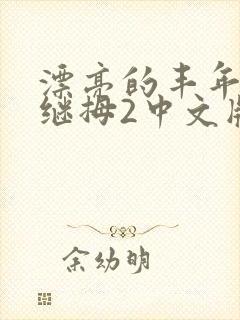 漂亮的丰年
继拇2中文
余幼明